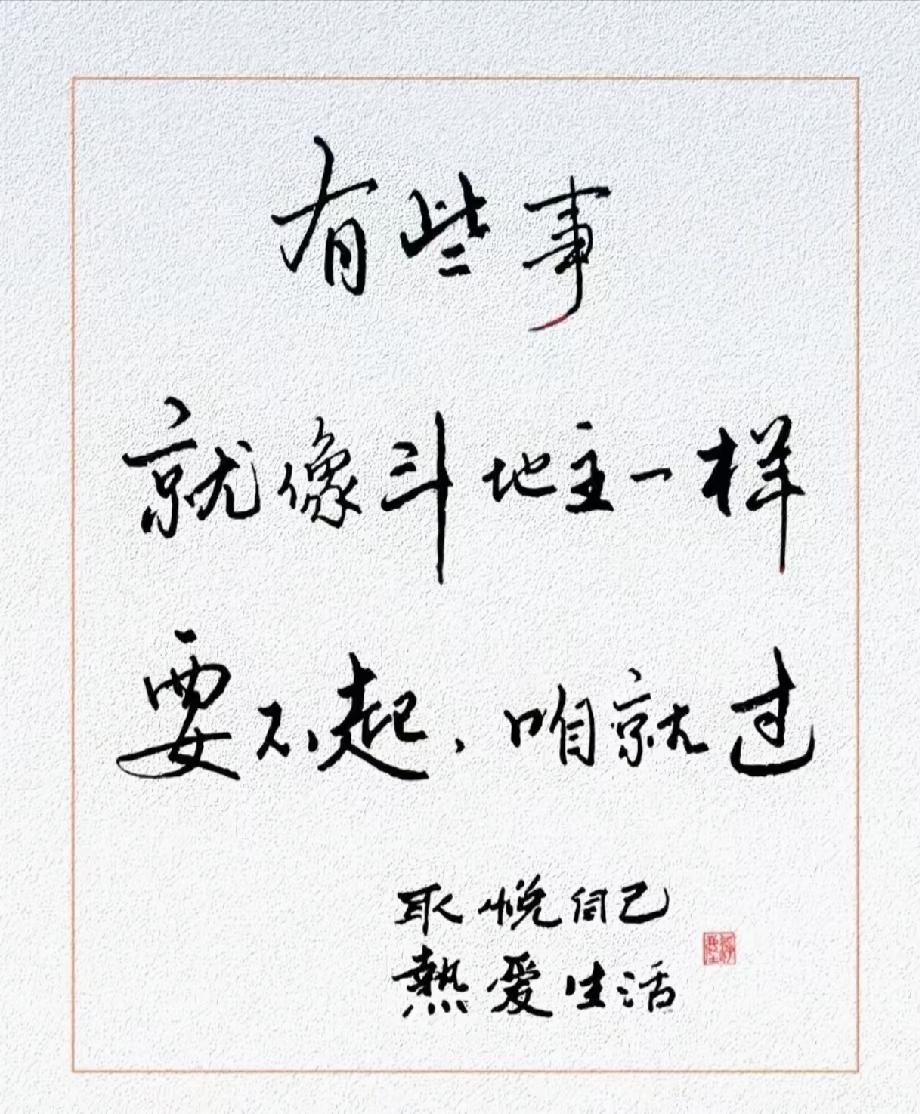 有些事
就像斗地主一样
要不起，咱就过
取悦自己
熱爱生活